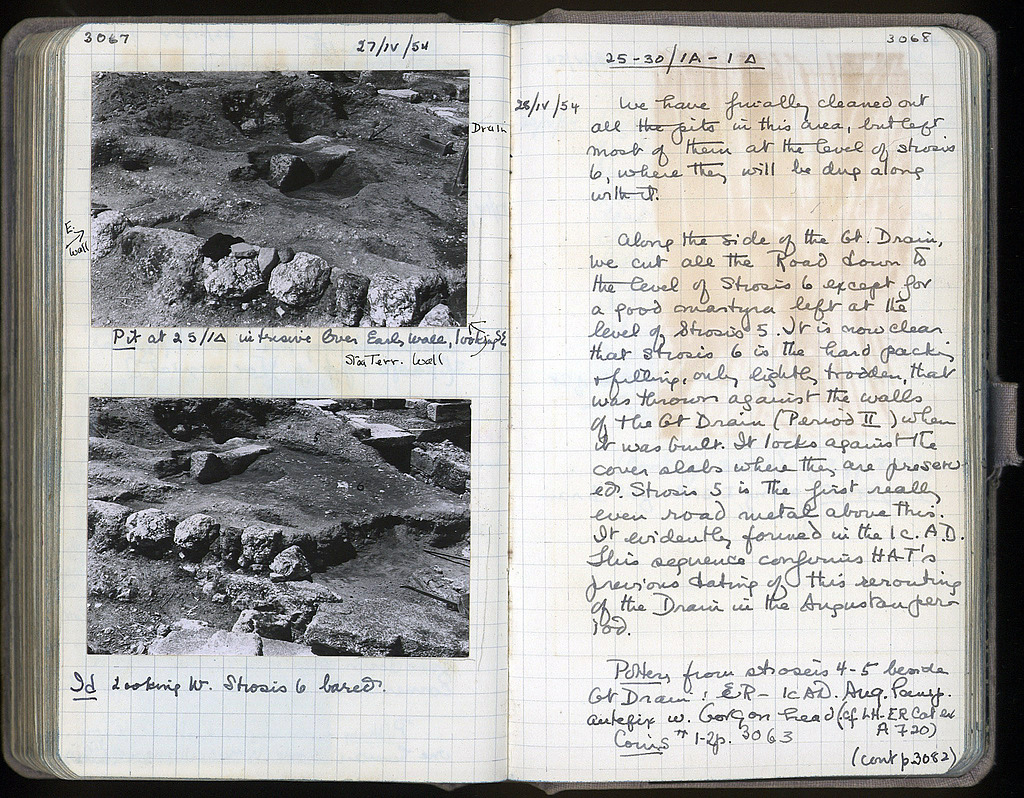 3067
27/IV/54
Drain
E.
Wall
Pit at 25/1Δ intrusive over Early Wall, looking SE
Stoa Terr. Wall
Id Looking W. Strosis 6 bared.
3068
25-30/1A-1Δ
28/IV/54
We have finally cleaned out
all the pits in this area, but left
most of them at the level of strosis
6, where they will be dug along
with it.
Along the side of the Gt. Drain,
we cut all the Road down to
the level of Strosis 6 except for
a good martyra left at the
level of Strosis 5. It is now clear
that strosis 6 is the hard packing
+ filling, only lightly trodden, that
was thrown against the walls
of the Gt Drain (Period II) when
it was built. It locks against the
cover slabs where they are preserv-
ed. Strosis 5 is the first really
even road metal above this.
It evidently formed in the 1c. A.D.
This sequence confirms HAT's
previous dating of this rerouting
of the Drain in the Augustan per-
iod.
Pottery from stroseis 4-5 beside
Gt Drain: ER - 1c AD. Aug. Lamp.
antefix w. Gorgon head (cf LH-ER Cat ex
A 720)
Coins # 1-2 p. 3063
(cont p 3082)